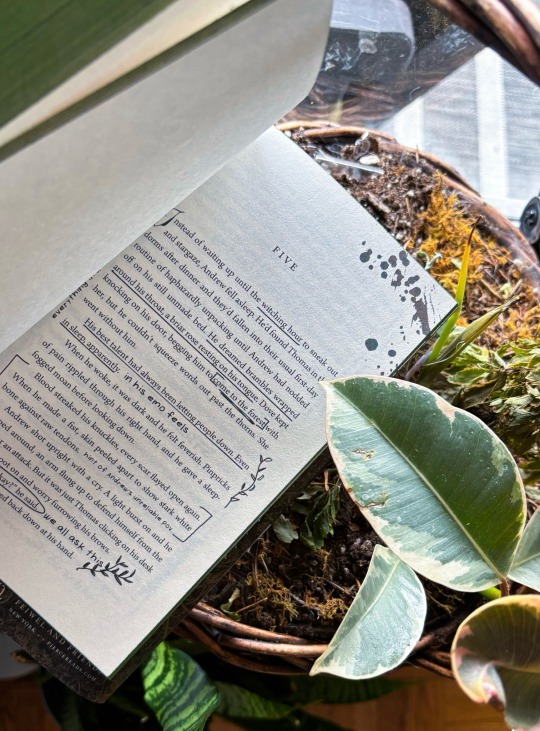 FIVE
Instead of waiting up until the witching hour to sneak out
and stargaze, Andrew fell asleep. He'd found Thomas in the
dorms after dinner and they'd fallen into their usual first-day
routine of haphazardly unpacking until Andrew had nodded
off on his still unmade bed. He dreamed brambles wrapped
around his throat, a briar rose resting on his tongue. Dove kept
knocking on his door, begging him to come to the forest with
her, but he couldn't squeeze words out past the thorns. She
went without him.
everything
His best talent had always been letting people down. Even
in sleep, apparently. in his emo feels
When he woke, it was dark and he felt feverish. Pinpricks
of pain rippled through his right hand, and he gave a sleep-
fogged moan before looking down.
Blood streaked his knuckles, every scar flayed open again.
When he made a fist, skin peeled apart to show stark white
bone against raw tendons. unreliable pov
Andrew shot upright with a cry. A light burst on and he
around, an arm flung up to defend himself from the
attack. But it was just Thomas clicking on his desk
and worry furrowing his brows.
he said. we all ask this
back down at his hand.
FEIWEL AND FRIENDS
NEW YORK
FIERCEREADS.COM